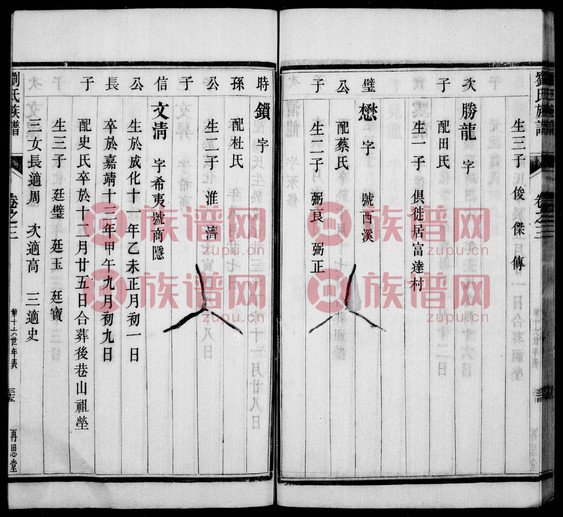 劉氏族譜
卷之三
生三子 俊 傑 傳
次 勝龍 字
子 配田氏
生一子 俱徙居富達村
璧 懋 字 號西溪
公 配蔡氏
子 生二子 弼良 弼正
時 鎖 字
孫 配杜氏
公 生二子 淮 濟
子
信 文清 字希夷號商隱
公 生於成化十一年乙未正月初一日
長 卒於嘉靖十三年甲午九月初九日
子 配史氏卒於十二月廿五日合葬後巷山祖塋
生三子 廷璧 廷玉 廷寶
三女長適周 次適高 三適史
劉氏族譜
卷之三
再思堂
族谱网
zupu.cn
族谱网
zupu.cn
族谱网
zupu.cn
族谱网
zupu.cn